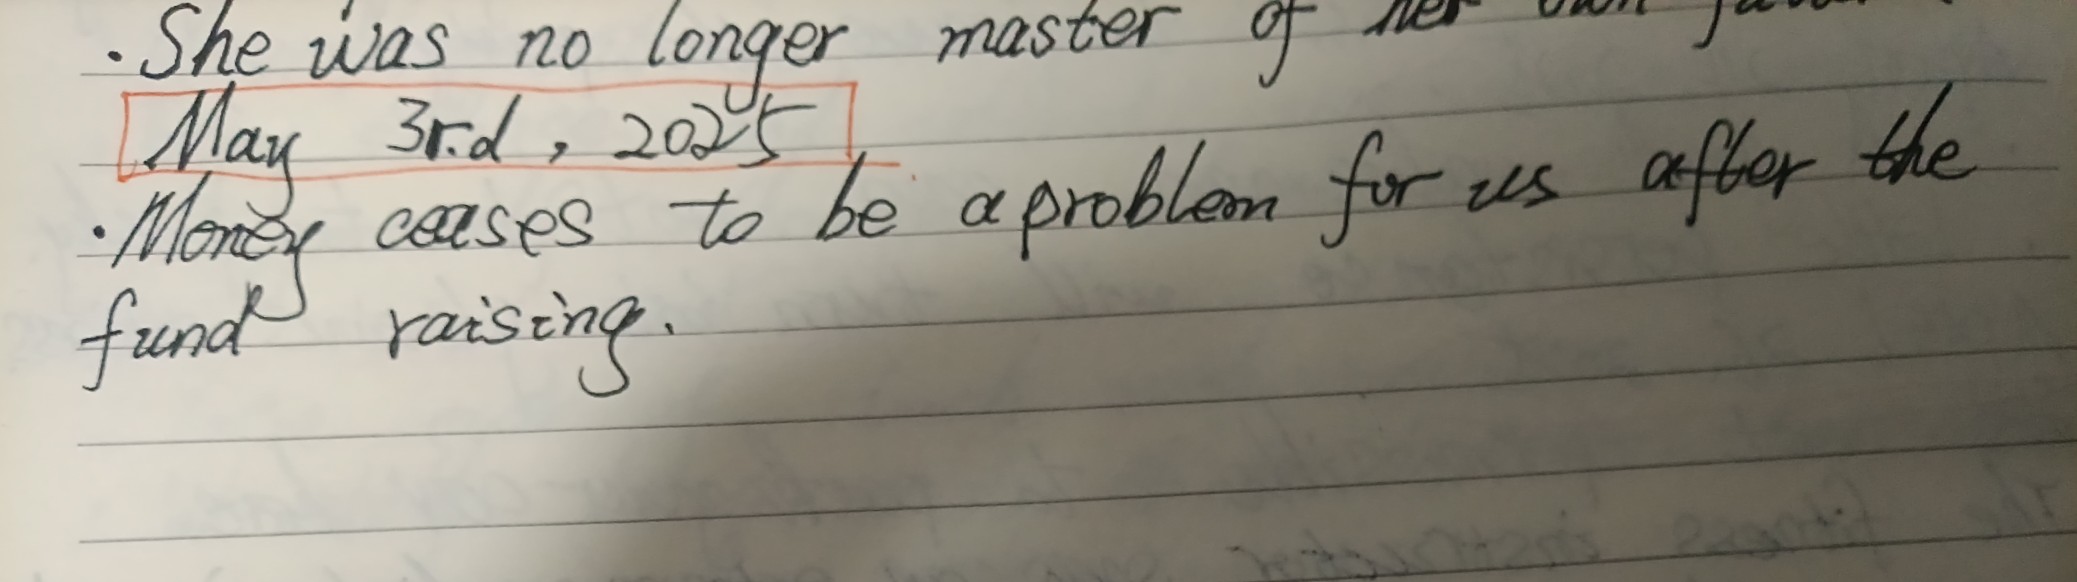 · She was no longer master of her own
May 3r.d, 2025
· Money ceases to be a problem for us after the
fund raising.